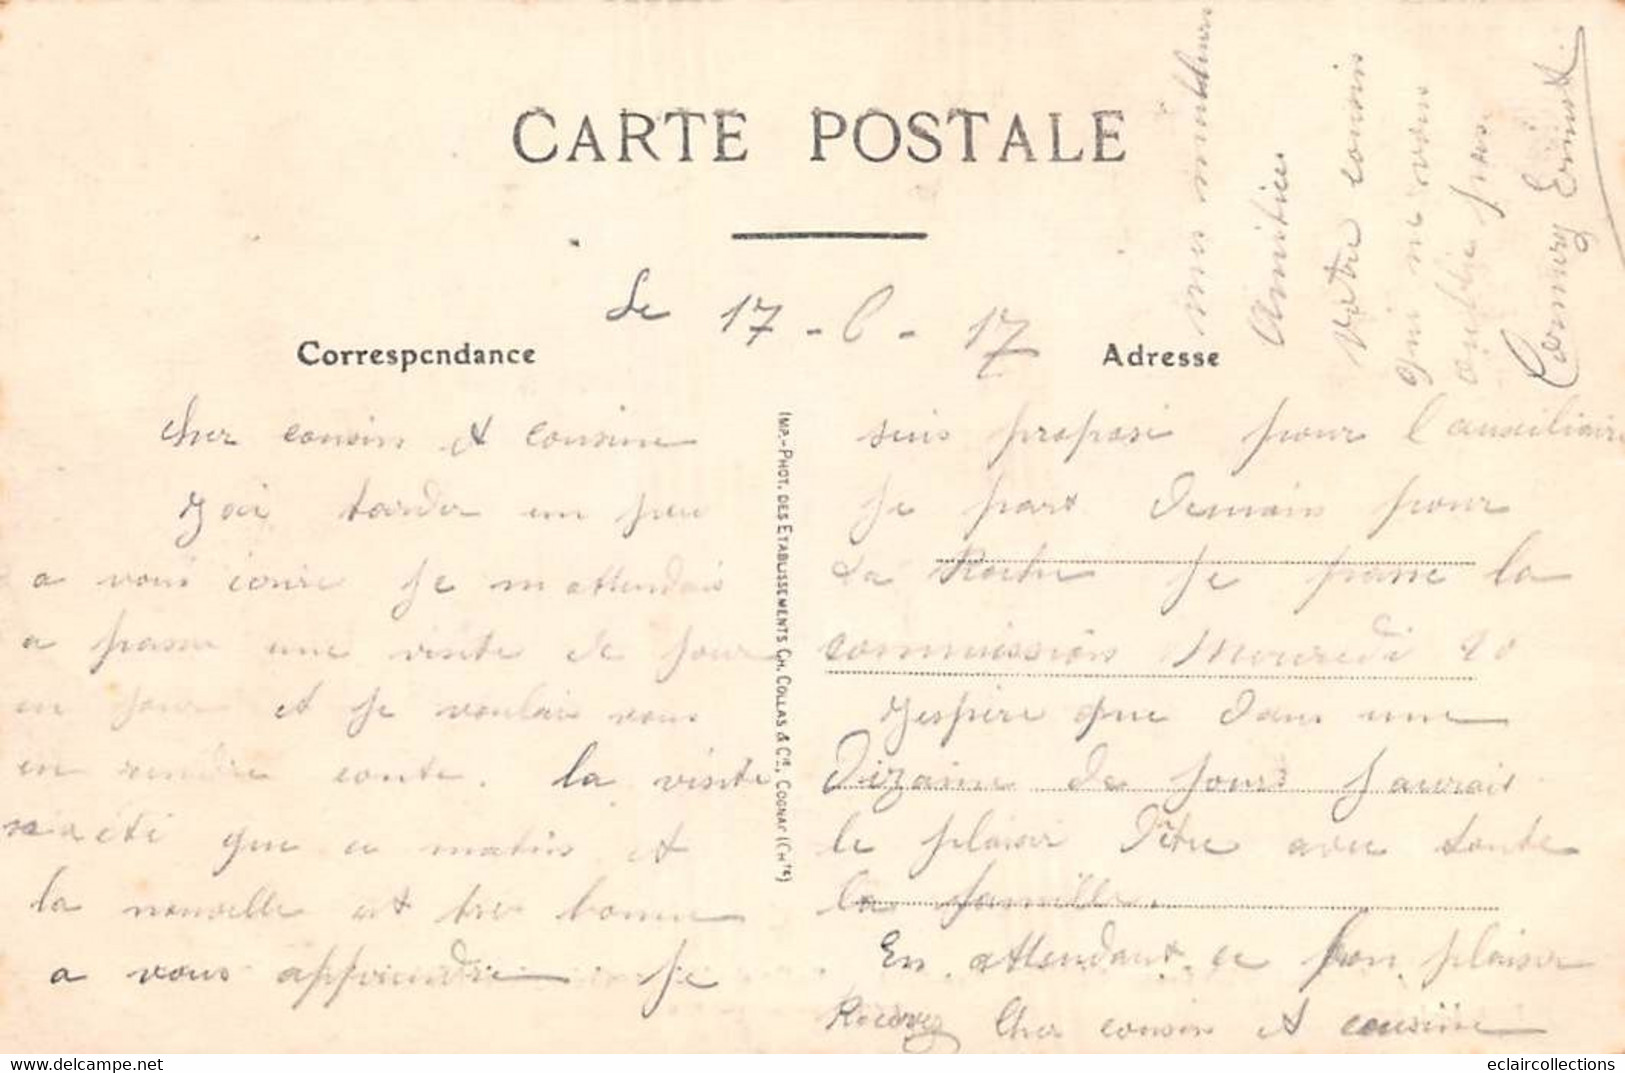 CARTE POSTALE
Le 17-6-17
Correspondance
Cher cousin et cousine
J ai tarder un peu
a vous écrire je m attendais
a passer une visite de jour
en jour et je voulais vous
en rendre conte. la visite
a été que ce matin et
la nouvelle est tres bonne
a vous apprendre je
IMP.-PHOT. DES ETABLISSEMENTS CH. COLLAS & Cie, COGNAC (Chte)
Adresse
suis proposé pour l'auxiliaire
Je part demain pour
La Roche je passe la
commission Mercredi 20
J espère que dans une
dizaine de jours j aurais
le plaisir d'être avec toute
la famille.
En attendant ce bon plaisir
Recevez Cher cousin et cousine
mes meilleurs
Amitiés
Votre cousin
qui ne vous
oublie pas.
Ernest
eclaircollections